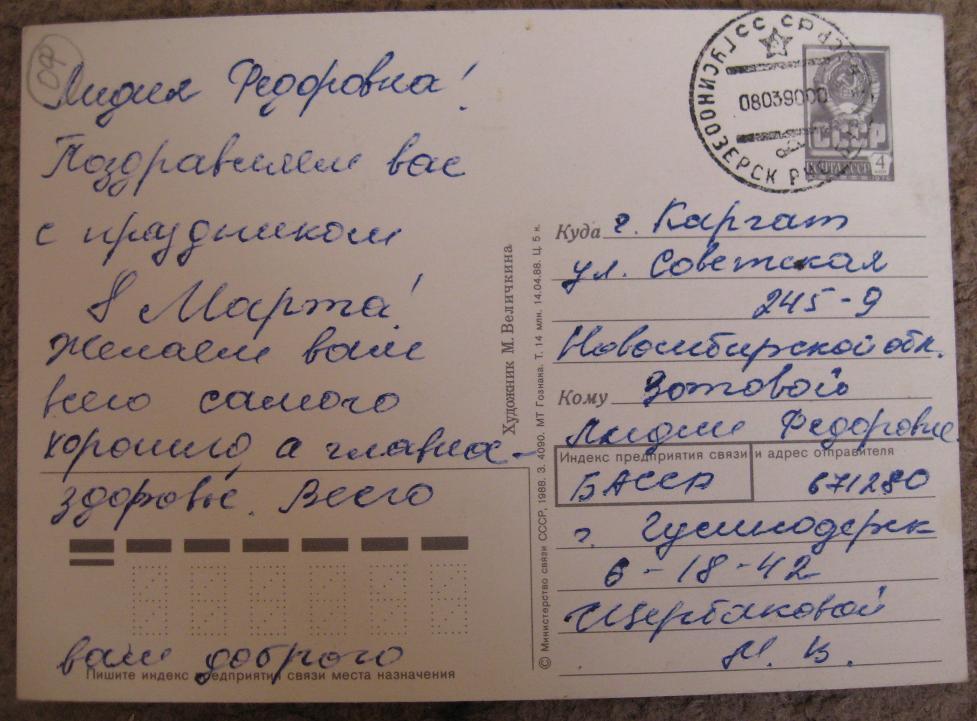 Лидия Федоровна!
Поздравляем вас
с праздником
8 Марта!
Желаем вам
всего самого
хорошего а главное –
здоровье. Всего
вам доброго
Пишите индекс предприятия связи места назначения
Художник М. Величкина
© Министерство связи СССР, 1988. З. 4090. МТ Гознака. Т. 14 млн. 14.04.88. Ц. 5 к.
ГУСИНООЗЕРСК
08039000
СССР
4
Куда г. Каргат
ул. Советская
245-9
Новосибирской обл.
Кому Зотовой
Лидии Федоровне
Индекс предприятия связи и адрес отправителя
БАССР 671280
г. Гусиноозерск
6-18-42
Щербаковой
М. В.